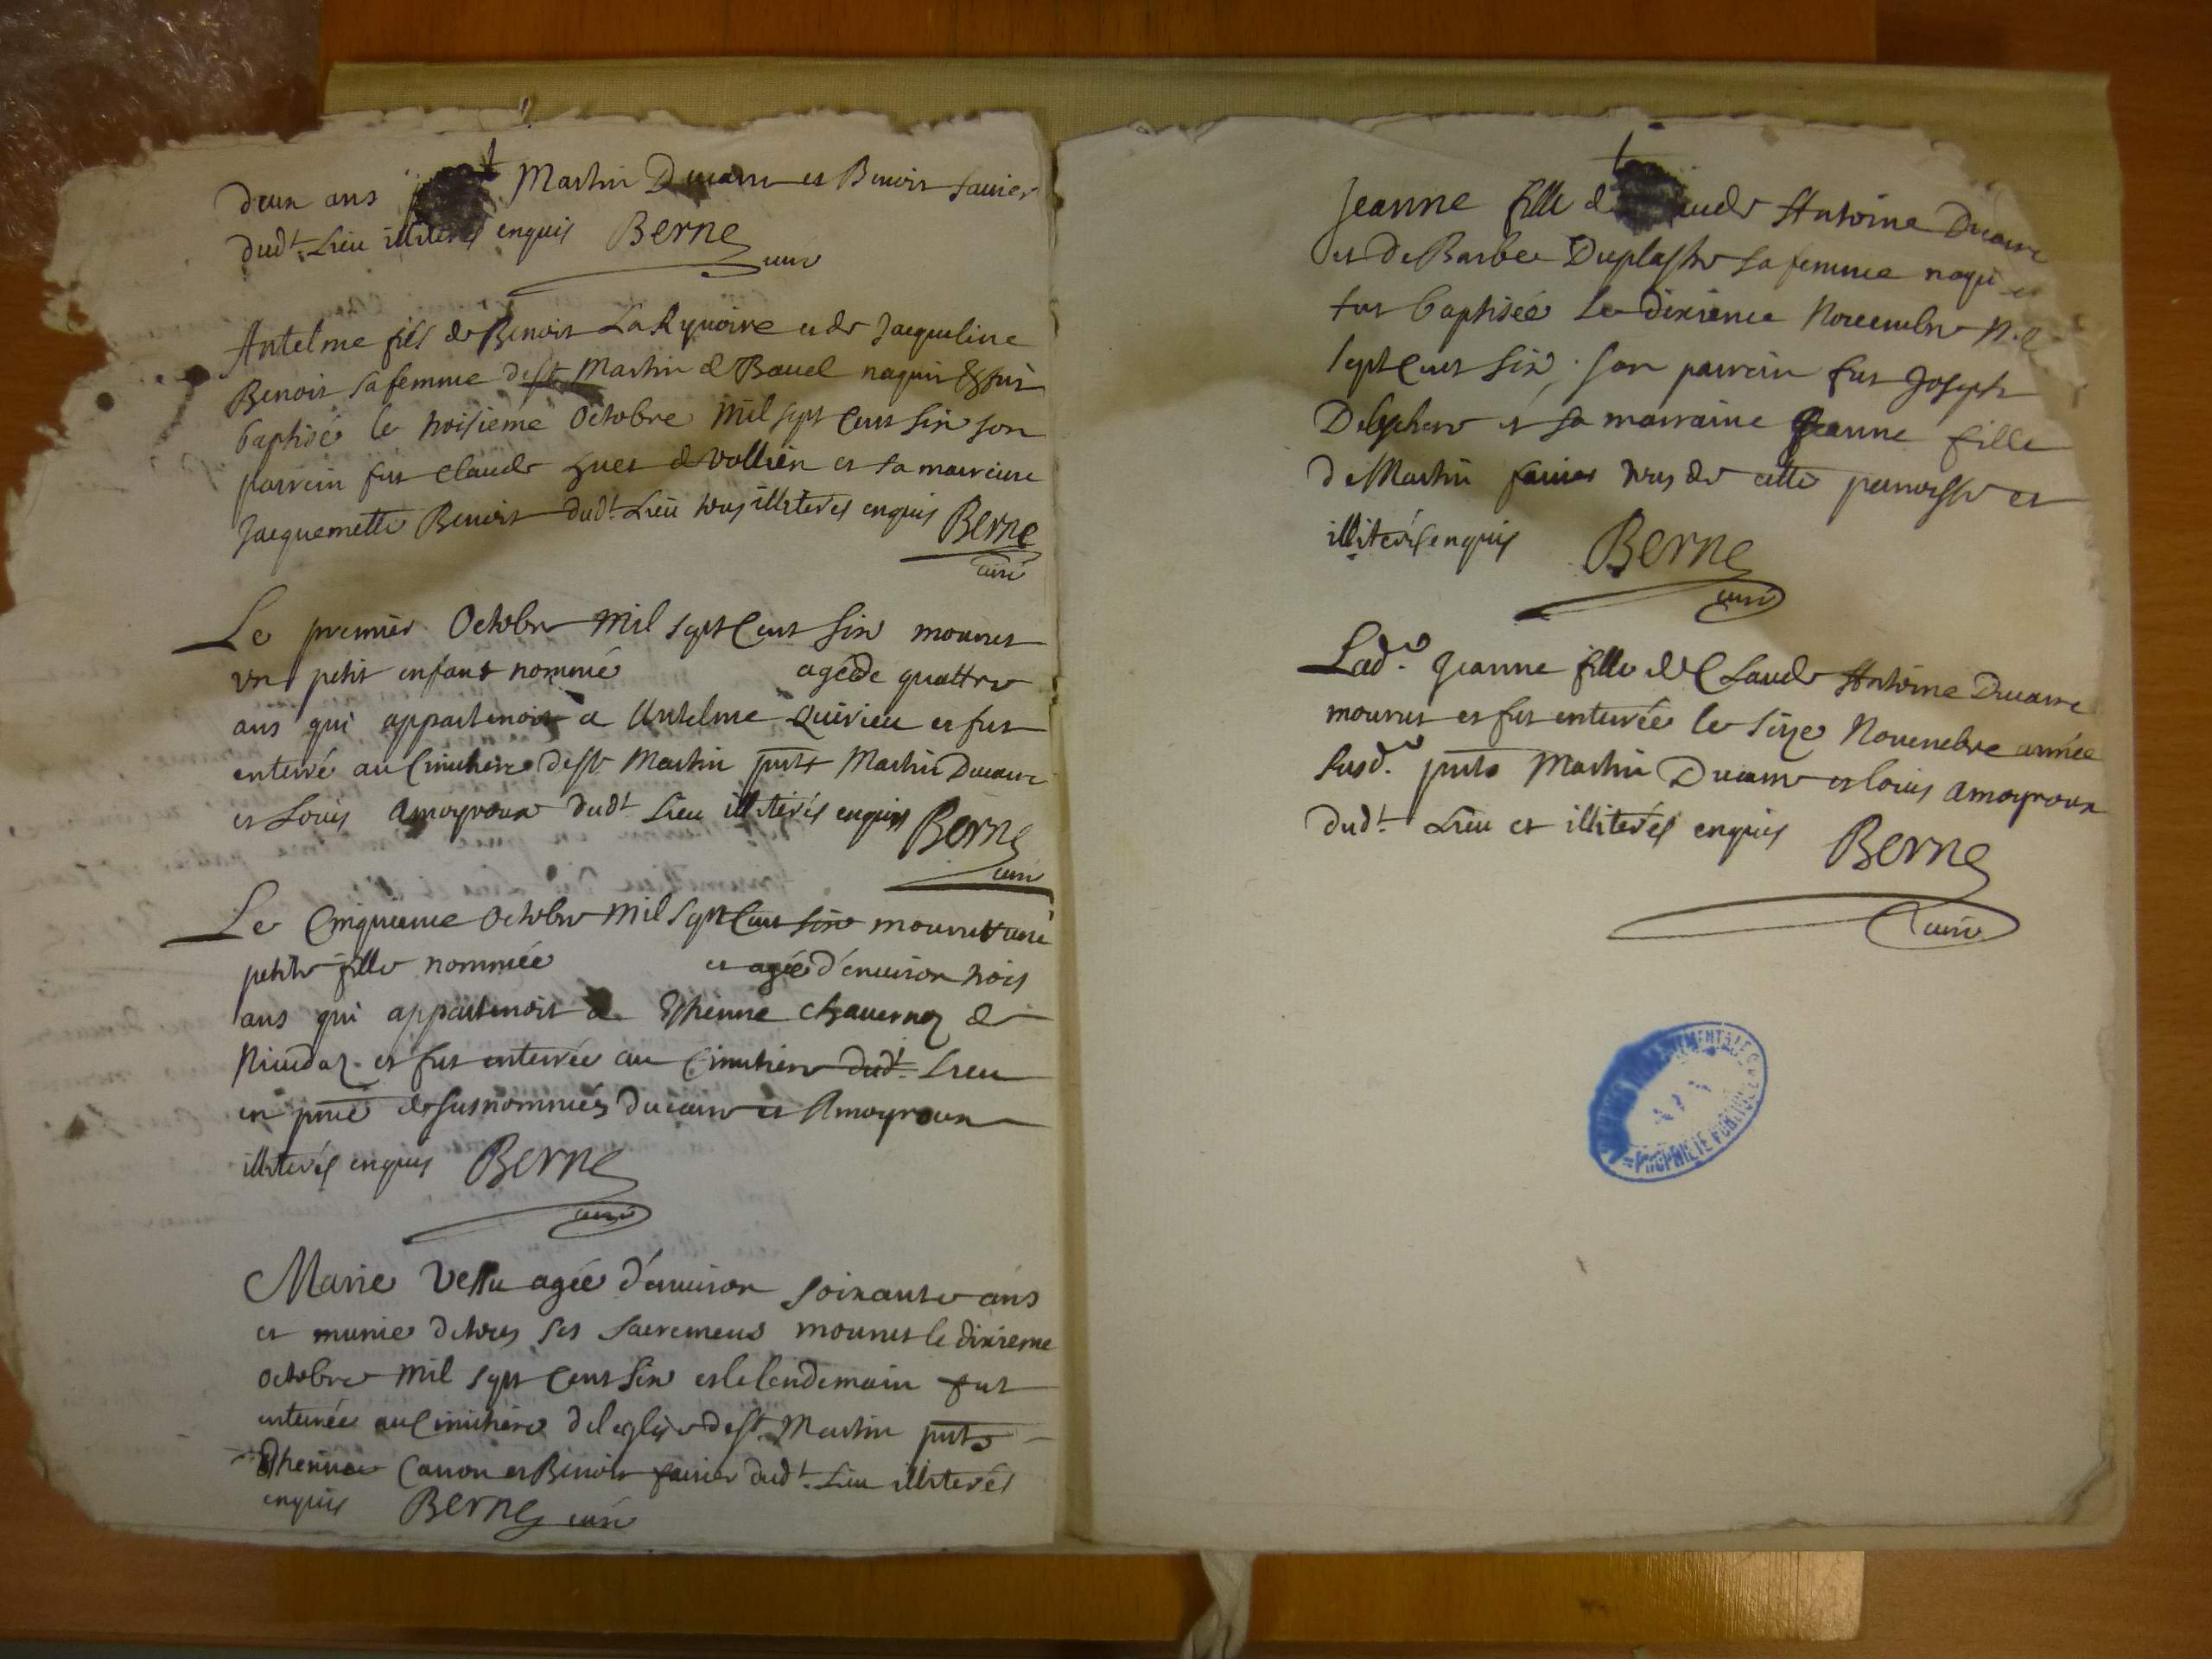 deux ans Martin Ducarre et Benoit favier
dud.t Lieu illiterés enquis Berne
curé
Antelme fils de Benoit La Rynoire et de Jacqueline
Benoit sa femme de st Martin de Bavel naquit & fut
baptisé le troisieme Octobre mil sept cent six son
parrein fut Claude huet de vollien et sa marreine
Jacquemette Benoit dud.t Lieu tous illiterés enquis Berne
curé
Le premier Octobre mil sept cent six mourut
un petit enfant nommé agé de quattre
ans qui appartenoit a Antelme Quirieu et fut
enterré au Cimithiere de st Martin pnts Martin Ducarre
et Louis Amoyroux dud.t Lieu illiterés enquis Berne
curé
Le Cinquieme Octobre mil sept cent six mourut une
petite fille nommée et agée d'environ trois
ans qui appartenoit a Ethienne Chavernoz de
et fut enterrée au Cimithiere dud.t Lieu
en pnce de susnommés ducarre et Amoyroux
illiterés enquis Berne
curé
Marie Vettu agée d'environ soixante ans
et munie de tous ses sacremens mourut le dixieme
octobre mil sept cent six et le lendemain fut
enterrée au Cimithiere de l eglise de st Martin pnts
Ethienne Carron et Benoit favier dud.t Lieu illiterés
enquis Berne curé
Jeanne fille de Claude Antoine Ducarre
et de Barbe Duplastre sa femme naqui et
fut baptisée le dixieme Novembre Mil
sept cent six, son parrein fut Joseph
et sa marraine Jeanne fille
de Martin favier tous de cette parroisse et
illiterés enquis Berne
curé
Lad.e Jeanne fille de Claude Antoine Ducarre
mourut et fut enterrée le size Novembre année
susd.e pnts Martin Ducarre et louis Amoyroux
dud.t Lieu et illiterés enquis Berne
curé
PROPRIETE PUBLIQUE